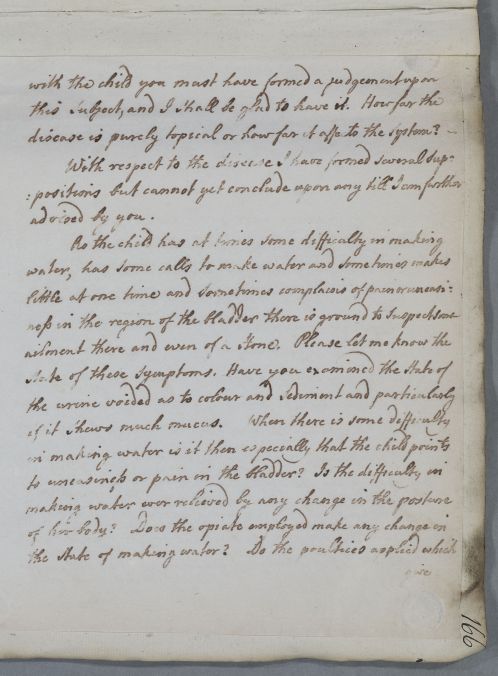 with the child you must have formed a judgement upon
this Subject, and I shall be glad to have it. How far the
disease is purely topical or how far it affects the system? –
With respect to the disease I have formed several sup:
:positions but cannot yet conclude upon any till I am further
advised by you.
As the child has at times some difficulty in making
water, has some calls to make water and sometimes makes
little at one time and sometimes complains of pain or uneasi:
ness in the region of the bladder there is ground to suspect some
ailment there and even of a Stone. Please let me know the
state of these symptoms. Have you examined the state of
the urine voided as to colour and sediment and particularly
if it shews much mucus. When there is some difficulty
in making water is it then especially that the child points
to uneasiness or pain in the bladder? Is the difficulty in
making water ever relieved by any change in the posture
of her body? Does the opiate employed make any change in
the state of making water? Do the poultices applied which
give
166